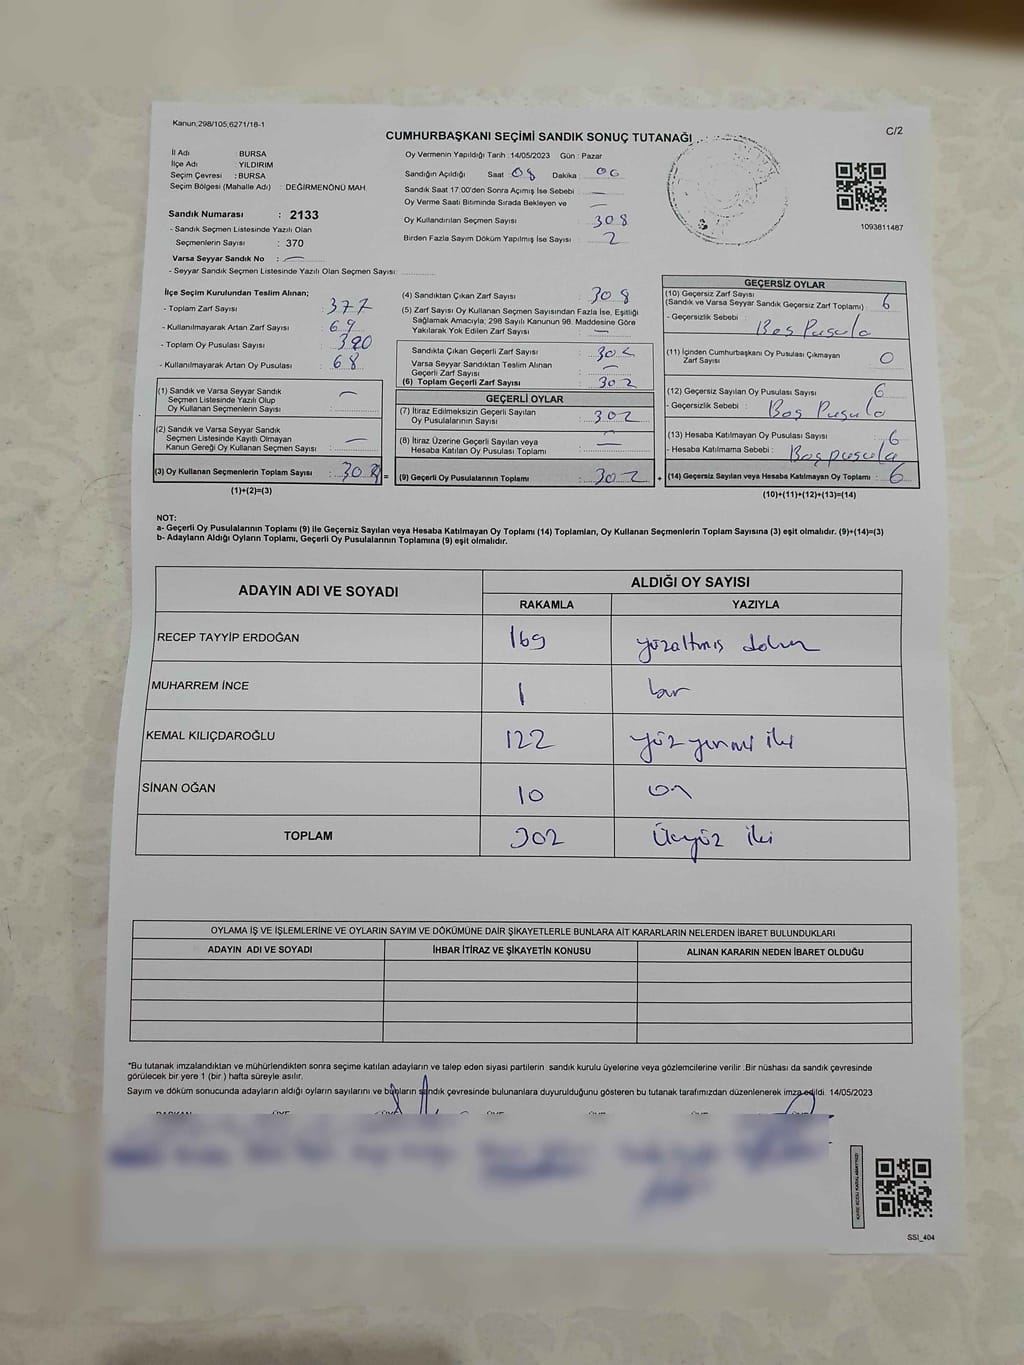 Kanun;298/105;6271/18-1
C/2
CUMHURBAŞKANI SEÇİMİ SANDIK SONUÇ TUTANAĞI
İl Adı : BURSA
İlçe Adı : YILDIRIM
Seçim Çevresi : BURSA
Seçim Bölgesi (Mahalle Adı) : DEĞİRMENÖNÜ MAH.
Sandık Numarası : 2133
- Sandık Seçmen Listesinde Yazılı Olan
Seçmenlerin Sayısı : 370
Varsa Seyyar Sandık No : —
- Seyyar Sandık Seçmen Listesinde Yazılı Olan Seçmen Sayısı:
Oy Vermenin Yapıldığı Tarih : 14/05/2023 Gün : Pazar
Sandığın Açıldığı Saat 08 Dakika : 06
Sandık Saat 17:00'den Sonra Açımış İse Sebebi : —
Oy Verme Saati Bitiminde Sırada Bekleyen ve
Oy Kullandırılan Seçmen Sayısı : 308
Birden Fazla Sayım Döküm Yapılmış İse Sayısı : 2
1093811487
İlçe Seçim Kurulundan Teslim Alınan;
- Toplam Zarf Sayısı : 377
- Kullanılmayarak Artan Zarf Sayısı : 69
- Toplam Oy Pusulası Sayısı : 390
- Kullanılmayarak Artan Oy Pusulası : 68
(1) Sandık ve Varsa Seyyar Sandık
Seçmen Listesinde Yazılı Olup
Oy Kullanan Seçmenlerin Sayısı : —
(2) Sandık ve Varsa Seyyar Sandık
Seçmen Listesinde Kayıtlı Olmayan
Kanun Gereği Oy Kullanan Seçmen Sayısı : —
(3) Oy Kullanan Seçmenlerin Toplam Sayısı : 308 =
(1)+(2)=(3)
(4) Sandıktan Çıkan Zarf Sayısı : 308
(5) Zarf Sayısı Oy Kullanan Seçmen Sayısından Fazla İse, Eşitliği
Sağlamak Amacıyla; 298 Sayılı Kanunun 98. Maddesine Göre
Yakılarak Yok Edilen Zarf Sayısı : —
Sandıkta Çıkan Geçerli Zarf Sayısı : 302
Varsa Seyyar Sandıktan Teslim Alınan
Geçerli Zarf Sayısı : —
(6) Toplam Geçerli Zarf Sayısı : 302
GEÇERLİ OYLAR
(7) İtiraz Edilmeksizin Geçerli Sayılan
Oy Pusulalarının Sayısı : 302
(8) İtiraz Üzerine Geçerli Sayılan veya
Hesaba Katılan Oy Pusulası Toplamı : —
(9) Geçerli Oy Pusulalarının Toplamı : 302 +
GEÇERSİZ OYLAR
(10) Geçersiz Zarf Sayısı
(Sandık ve Varsa Seyyar Sandık Geçersiz Zarf Toplamı) : 6
- Geçersizlik Sebebi : Boş Pusula
(11) İçinden Cumhurbaşkanı Oy Pusulası Çıkmayan
Zarf Sayısı : 0
(12) Geçersiz Sayılan Oy Pusulası Sayısı : 6
- Geçersizlik Sebebi : Boş Pusula
(13) Hesaba Katılmayan Oy Pusulası Sayısı : 6
- Hesaba Katılmama Sebebi : Boş pusula
(14) Geçersiz Sayılan veya Hesaba Katılmayan Oy Toplamı : 6
(10)+(11)+(12)+(13)=(14)
NOT:
a- Geçerli Oy Pusulalarının Toplamı (9) ile Geçersiz Sayılan veya Hesaba Katılmayan Oy Toplamı (14) Toplamları, Oy Kullanan Seçmenlerin Toplam Sayısına (3) eşit olmalıdır. (9)+(14)=(3)
b- Adayların Aldığı Oyların Toplamı, Geçerli Oy Pusulalarının Toplamına (9) eşit olmalıdır.
ADAYIN ADI VE SOYADI
ALDIĞI OY SAYISI
RAKAMLA YAZIYLA
RECEP TAYYİP ERDOĞAN 169 yüzaltmış dokuz
MUHARREM İNCE 1 bir
KEMAL KILIÇDAROĞLU 122 yüz yirmi iki
SİNAN OĞAN 10 on
TOPLAM 302 Üçyüz iki
OYLAMA İŞ VE İŞLEMLERİNE VE OYLARIN SAYIM VE DÖKÜMÜNE DAİR ŞİKAYETLERLE BUNLARA AİT KARARLARIN NELERDEN İBARET BULUNDUKLARI
ADAYIN ADI VE SOYADI İHBAR İTİRAZ VE ŞİKAYETİN KONUSU ALINAN KARARIN NEDEN İBARET OLDUĞU
*Bu tutanak imzalandıktan ve mühürlendikten sonra seçime katılan adayların ve talep eden siyasi partilerin sandık kurulu üyelerine veya gözlemcilerine verilir .Bir nüshası da sandık çevresinde
görülecek bir yere 1 (bir ) hafta süreyle asılır.
Sayım ve döküm sonucunda adayların aldığı oyların sayılarını ve bunların sandık çevresinde bulunanlara duyurulduğunu gösteren bu tutanak tarafımızdan düzenlenerek imza edildi. 14/05/2023
SSI_404